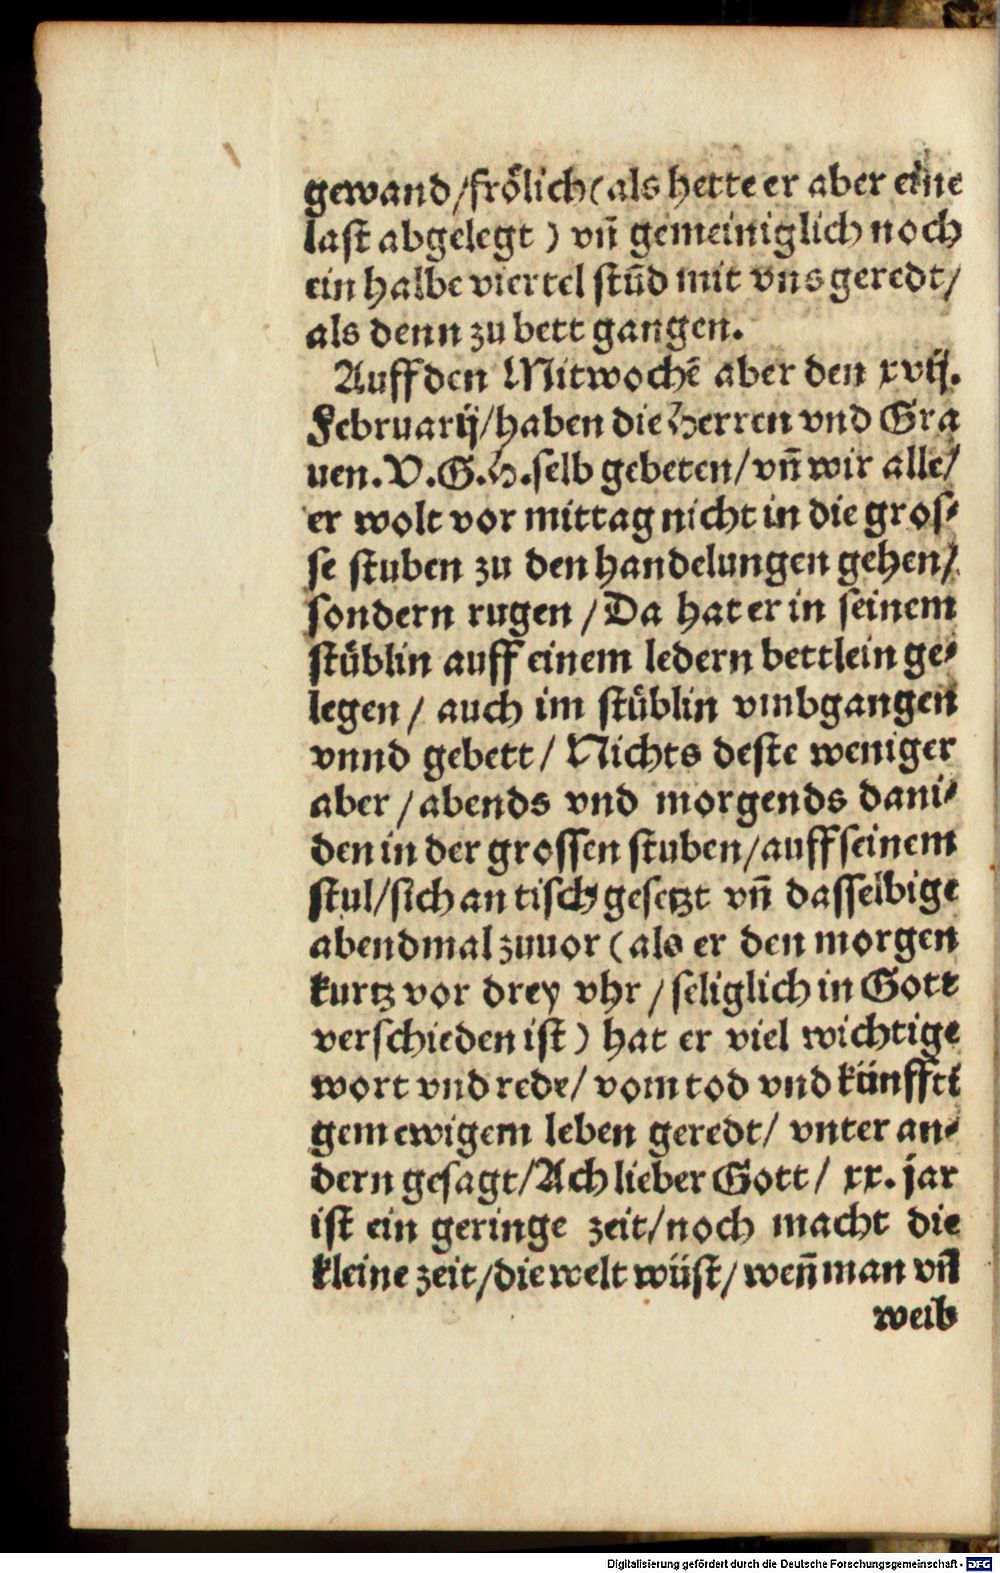 gewand/frölich(als hette er aber eine
last abgelegt) vn̄ gemeiniglich noch
ein halbe viertel stūd mit vns geredt/
als denn zu bett gangen.
Auff den Mitwochē aber den xvij.
Februarij/haben die Herren vnd Gra
uen. V.G.H.selb gebeten/vn̄ wir alle/
er wolt vor mittag nicht in die gros⸗
se stuben zu den handelungen gehen/
sondern rugen/Da hat er in seinem
stüblin auff einem ledern bettlein ge⸗
legen/ auch im stüblin vmbgangen
vnnd gebett/ Nichts deste weniger
aber/abends vnd morgends dani⸗
den in der grossen stuben/auff seinem
stul/sich an tisch gesetzt vn̄ dasselbige
abendmal zuuor (als er den morgen
kurtz vor drey vhr/seliglich in Gott
verschieden ist) hat er viel wichtige
wort vnd rede/ vom tod vnd künffti
gem ewigem leben geredt/ vnter an⸗
dern gesagt/Ach lieber Gott/ xx. jar
ist ein geringe zeit/noch macht die
kleine zeit/die welt wüst/wen̄ man vn̄
weib
Digitalisierung gefördert durch die Deutsche Forschungsgemeinschaft - DFG